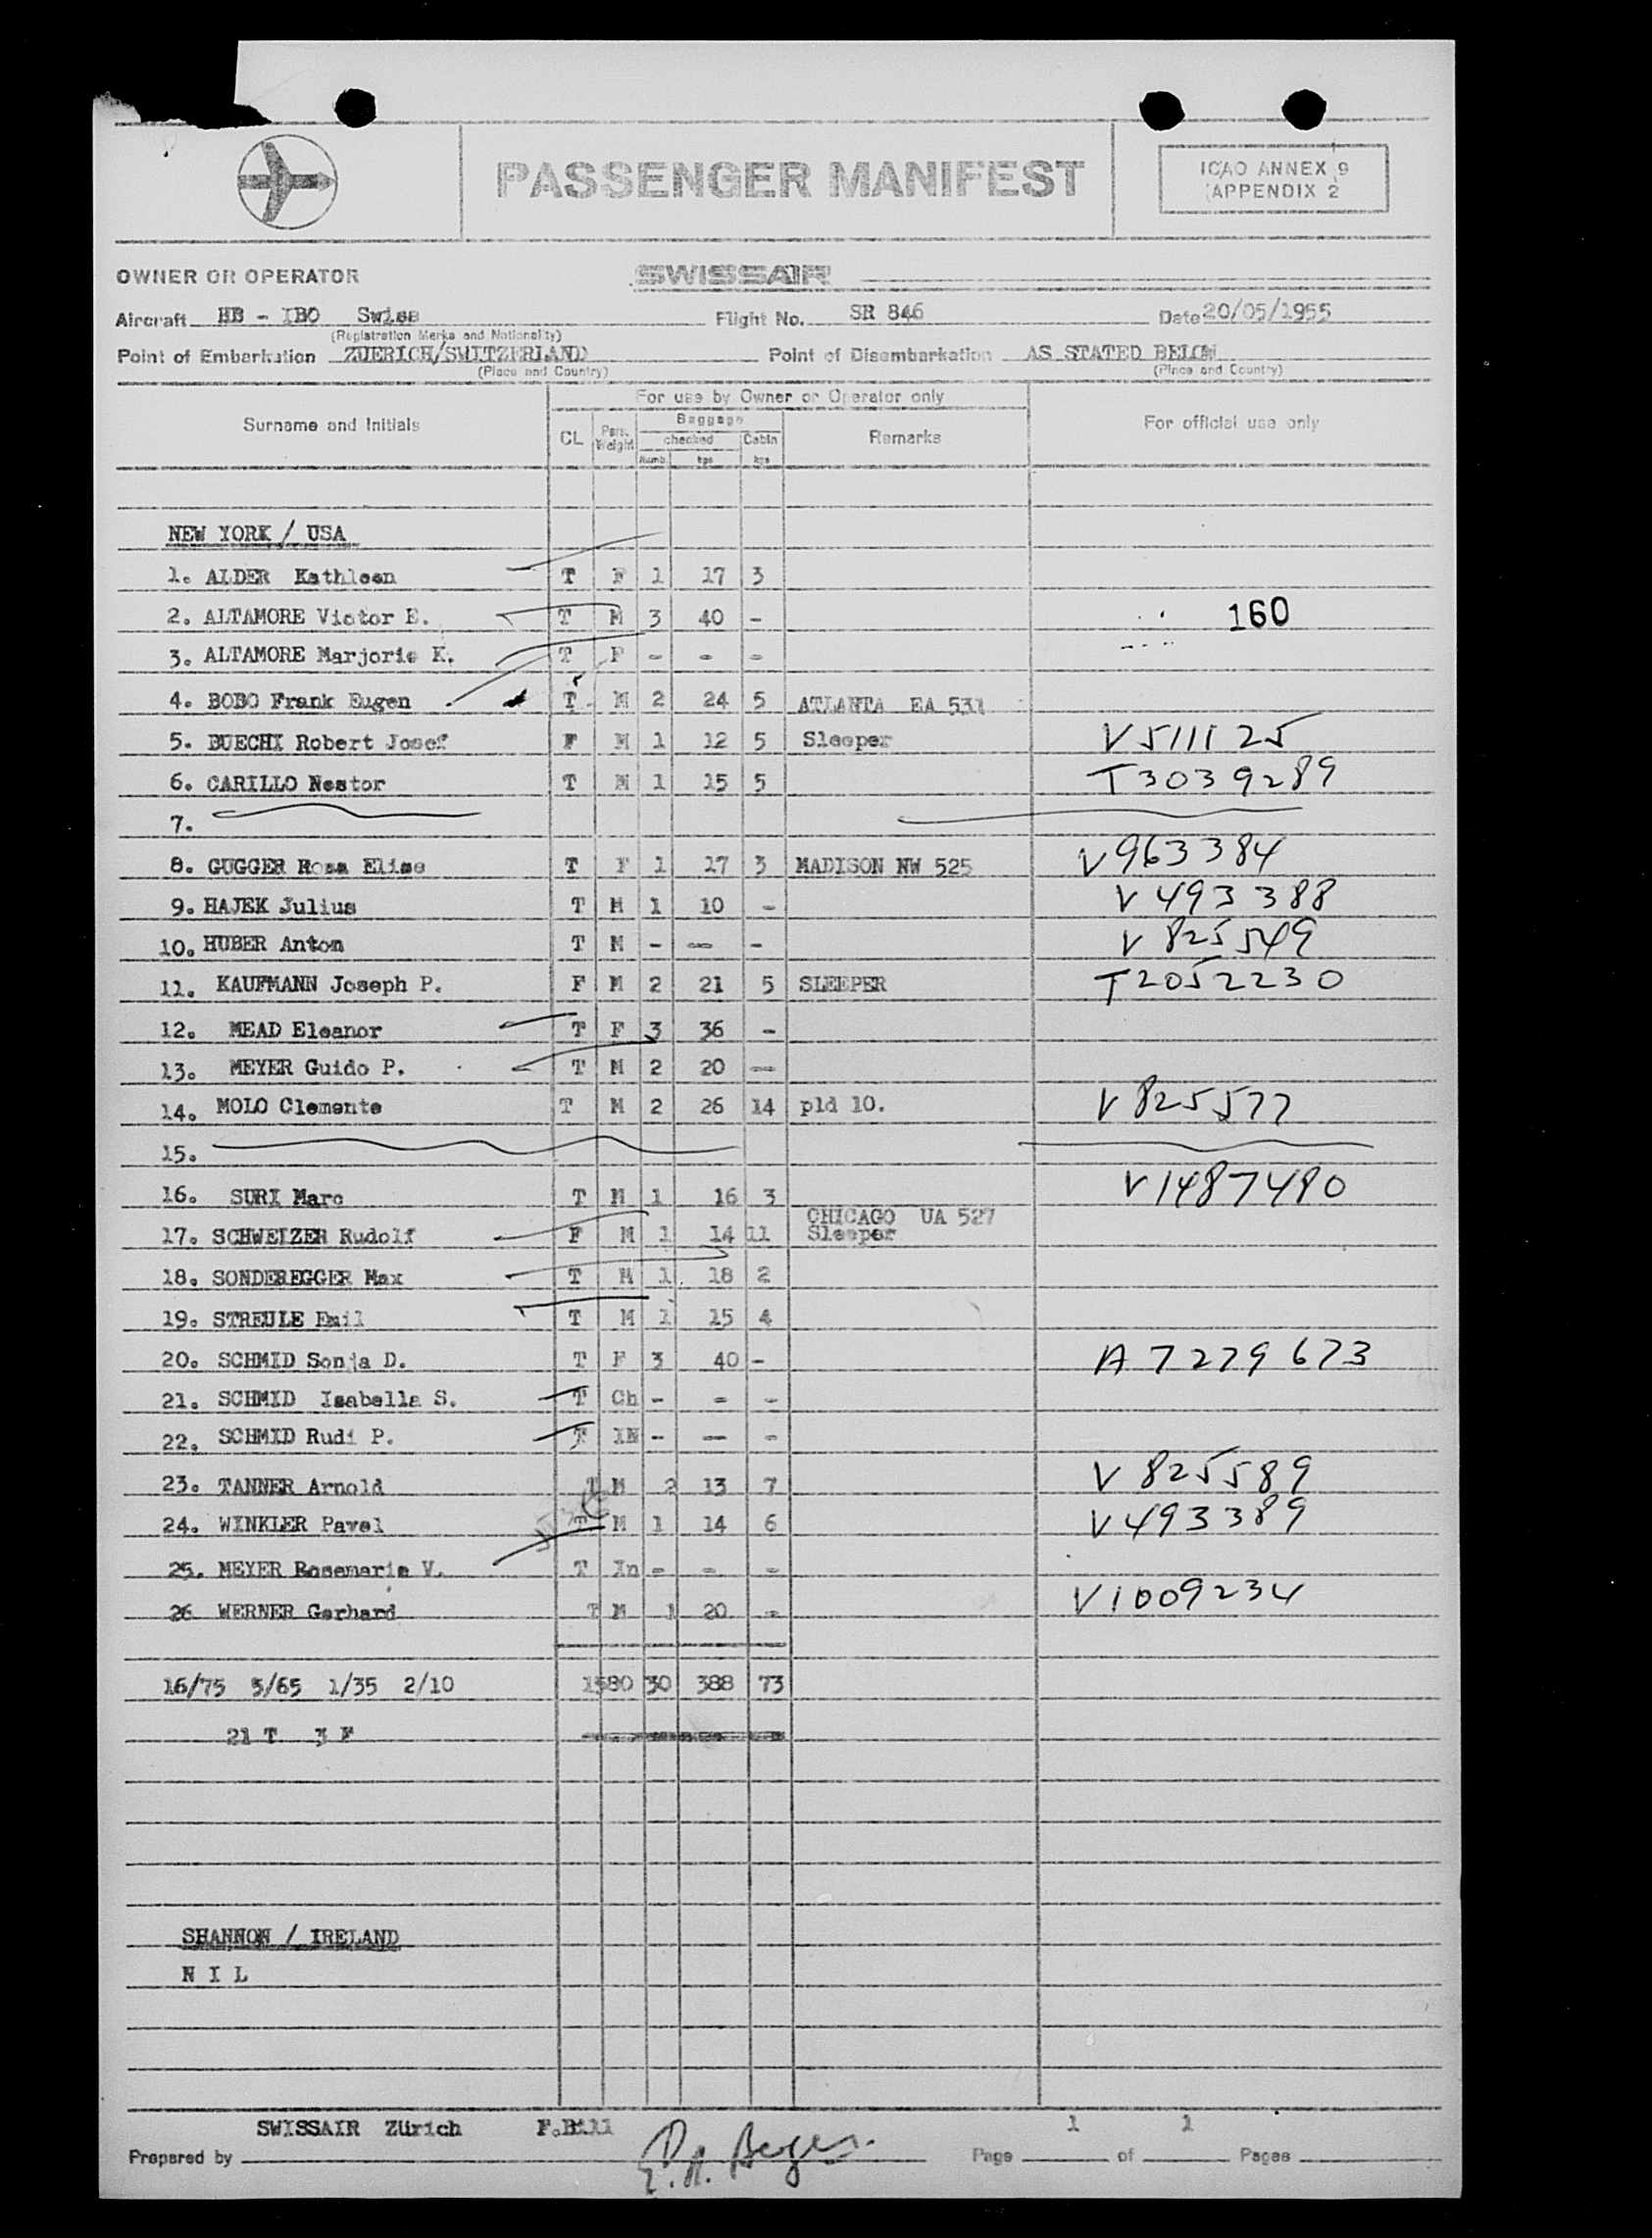 PASSENGER MANIFEST
ICAO ANNEX 9
APPENDIX 2
OWNER OR OPERATOR SWISSAIR
Aircraft HB - IBO Swiss Flight No. SR 846 Date 20/05/1955
(Registration Marks and Nationality)
Point of Embarkation ZUERICH/SWITZERLAND Point of Disembarkation AS STATED BELOW
(Place and Country) (Place and Country)
For use by Owner or Operator only
Surname and Initials CL Pers. Weight Baggage checked Cabin Remarks For official use only
Numb. kgs kgs
NEW YORK / USA
1. ALDER Kathleen T F 1 17 3
2. ALTAMORE Victor E. T M 3 40 - 160
3. ALTAMORE Marjorie K. T F - - -
4. BOBO Frank Eugen T M 2 24 5 ATLANTA EA 531
5. BUECHI Robert Josef F M 1 12 5 Sleeper V511125
6. CARILLO Nestor T M 1 15 5 T3039289
7.
8. GUGGER Rosa Elise T F 1 17 3 MADISON NW 525 V963384
9. HAJEK Julius T M 1 10 - V493388
10. HUBER Anton T M - - - V825549
11. KAUFMANN Joseph P. F M 2 21 5 SLEEPER T2052230
12. MEAD Eleanor T F 3 36 -
13. MEYER Guido P. T M 2 20 -
14. MOLO Clemente T M 2 26 14 pld 10. V825577
15.
16. SURI Marc T M 1 16 3 V1487480
CHICAGO UA 527
17. SCHWEIZER Rudolf F M 1 14 11 Sleeper
18. SONDEREGGER Max T M 1 18 2
19. STREULE Emil T M 1 15 4
20. SCHMID Sonja D. T F 3 40 - A7279673
21. SCHMID Isabella S. T Ch - - -
22. SCHMID Rudi P. T IN - - -
23. TANNER Arnold T M 2 13 7 V825589
24. WINKLER Pavel T M 1 14 6 V493389
25. MEYER Rosemarie V. T In - - -
26 WERNER Gerhard T M 1 20 - V1009234
16/75 5/65 1/35 2/10 1580 30 388 73
21 T 3 F
SHANNON / IRELAND
N I L
SWISSAIR Zürich F.Bill 1 1
Prepared by Page of Pages